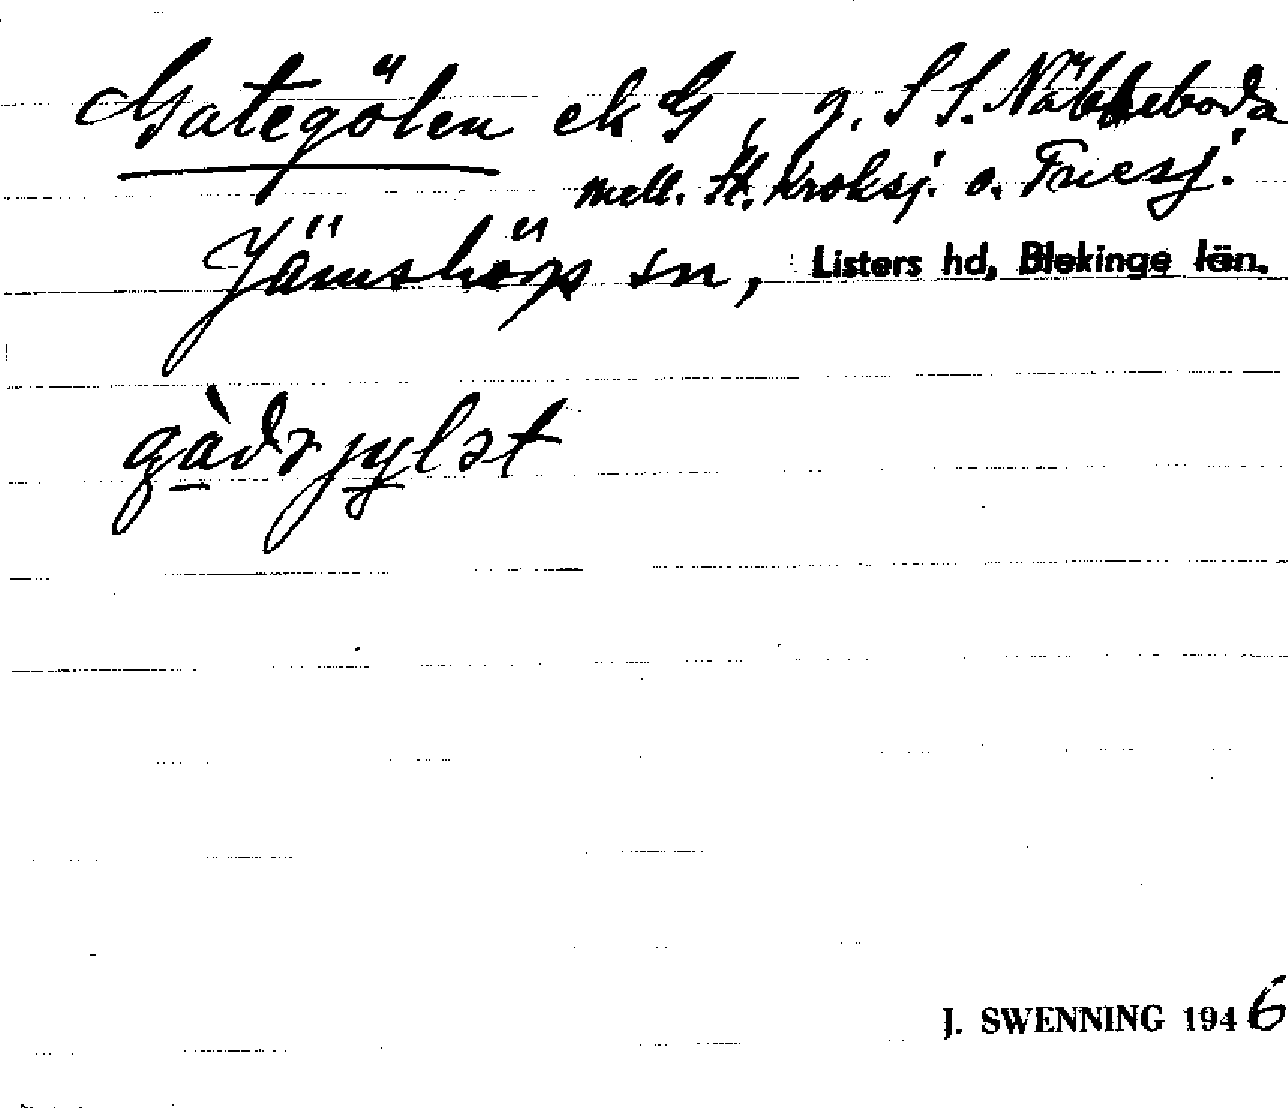 Gategölen ek G, g. S S. Näbbeboda
mell. St. Kroksj. o. Friesj.
Jämshögs sn, Listers hd, Blekinge län.
J. SWENNING 1946